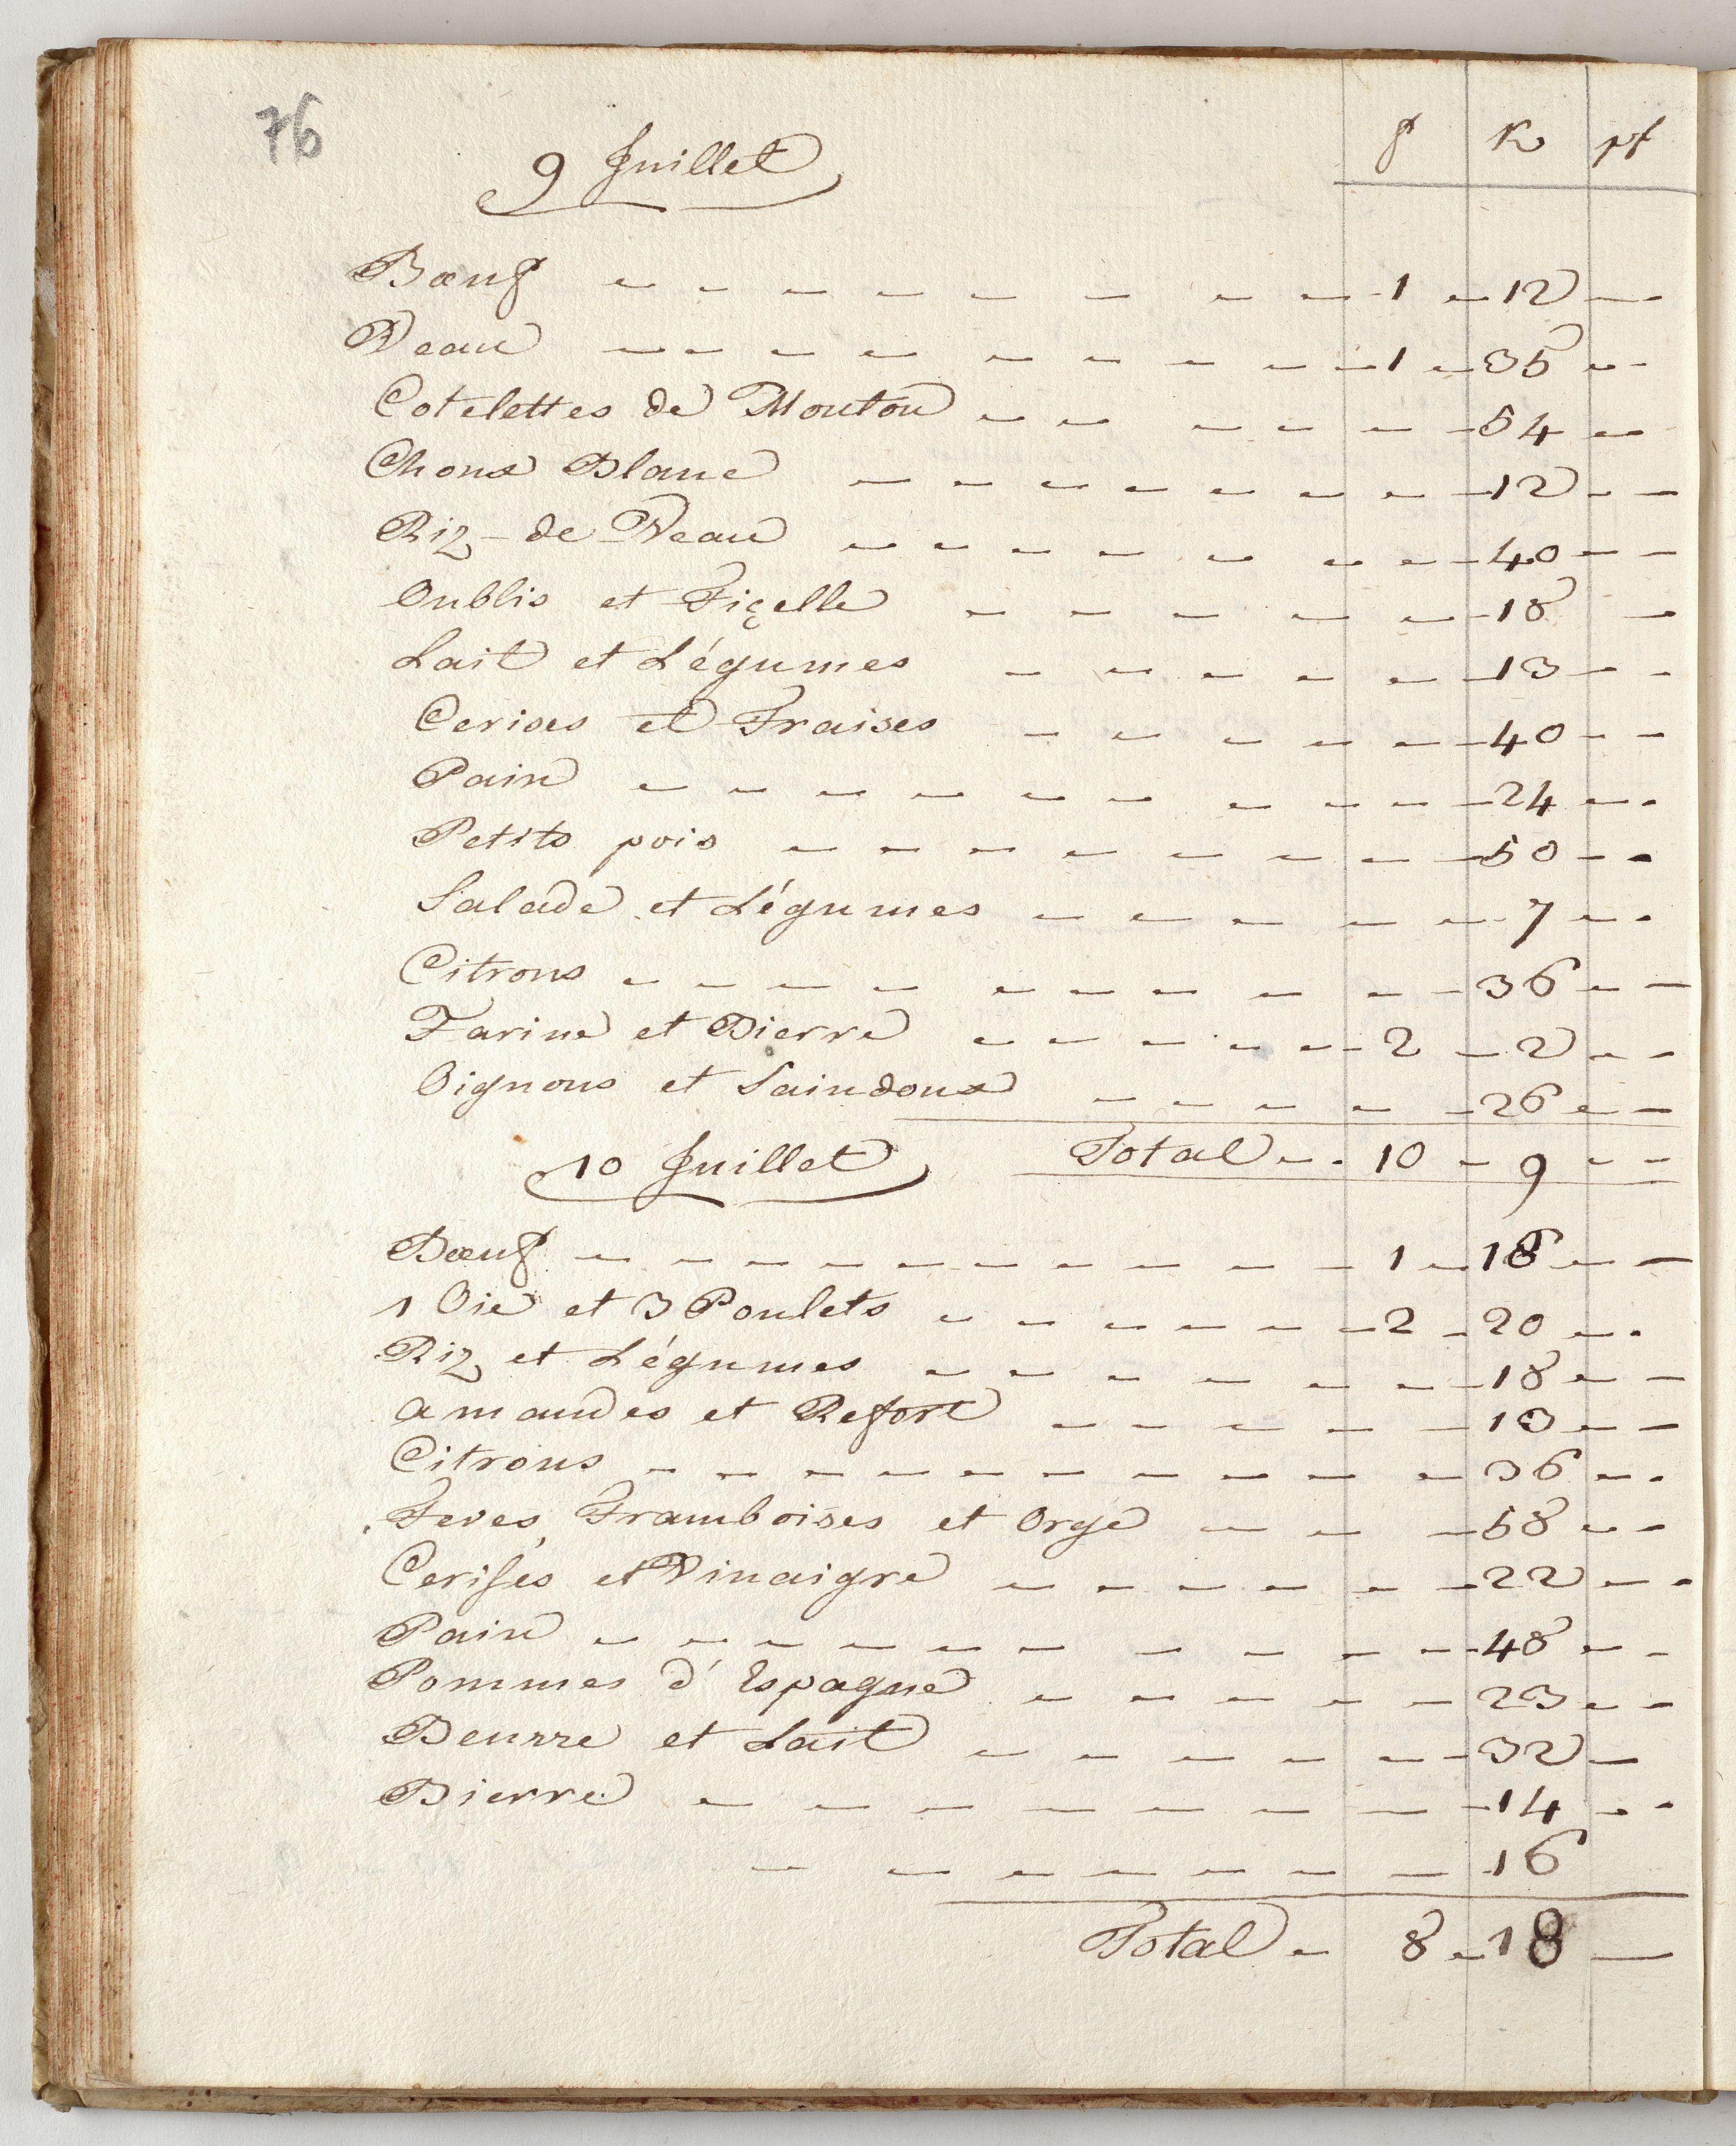 76
9 Juillet f Kr pf
Bœuf 1 12
Veau 1 35
Cotelettes de Mouton 54
Choux Blanc 12
Riz-de Veau 40
Oublis et Fiçelle 18
Lait et Légumes 13
Cerises et Fraises 40
Pain 24
Petits pois 50
Salade et Légumes 7
Citrons 36
Farine et Bierre 2 2
Oignons et Saindoux 26
Total 10 9
10 Juillet
Bœuf 1 18
1 Oie et 3 Poulets 2 20
Riz et Légumes 18
amandes et Refort 13
Citrons 36
Feves, Framboises et Orge 58
Cerises et Vinaigre 22
Pain 48
Pommes d'Espagne 23
Beurre et Lait 32
Bierre 14
16
Total 8 18